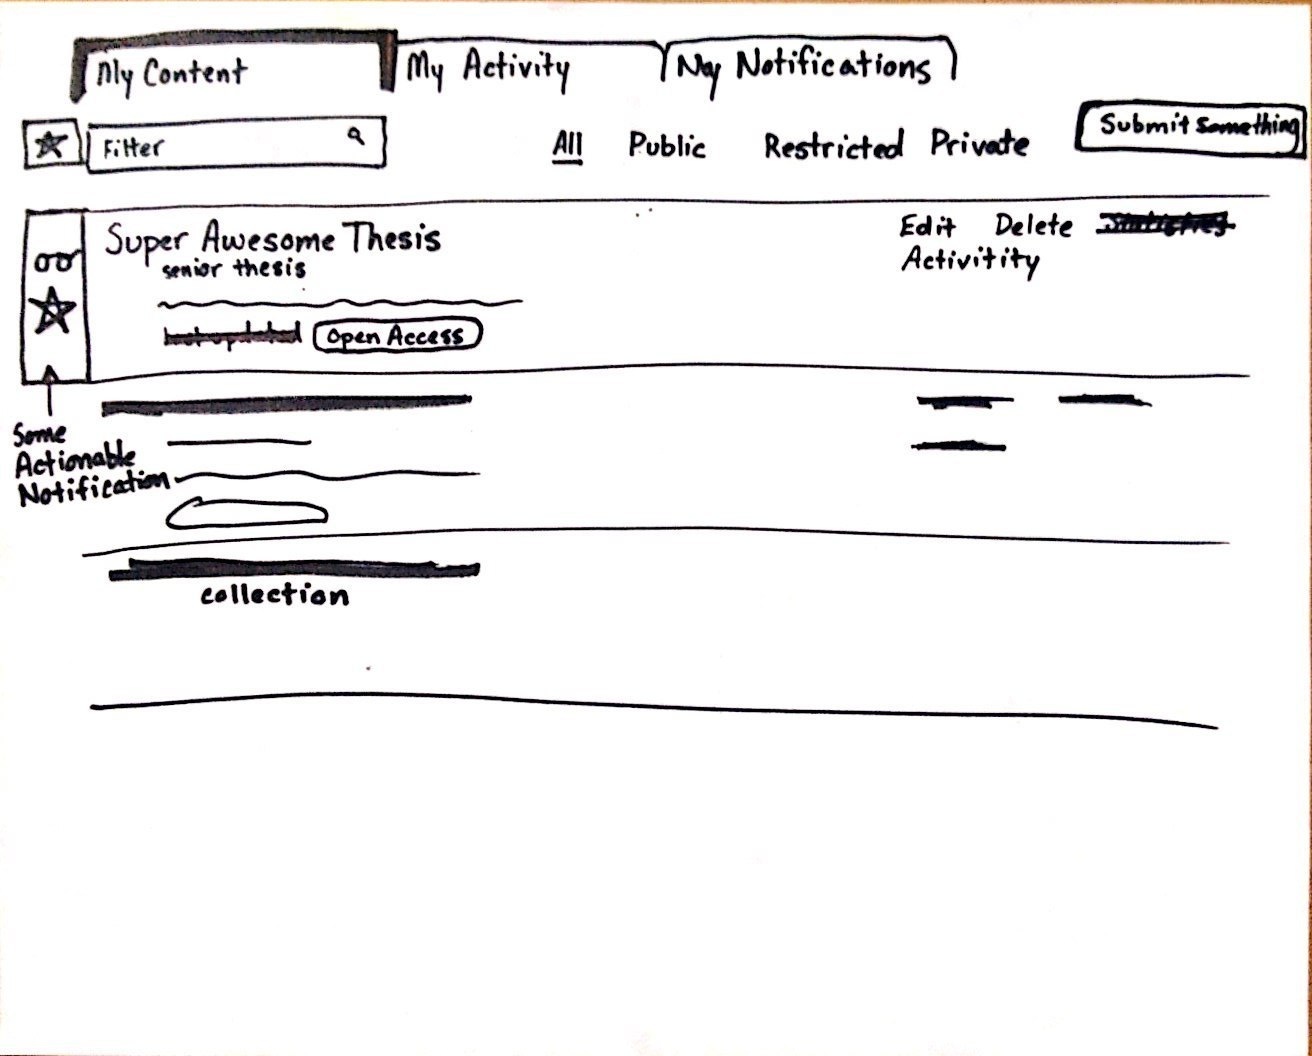 My Content My Activity My Notifications
Filter All Public Restricted Private Submit Something
Super Awesome Thesis Edit Delete
senior thesis Activitity
Open Access
Some
Actionable
Notification
collection